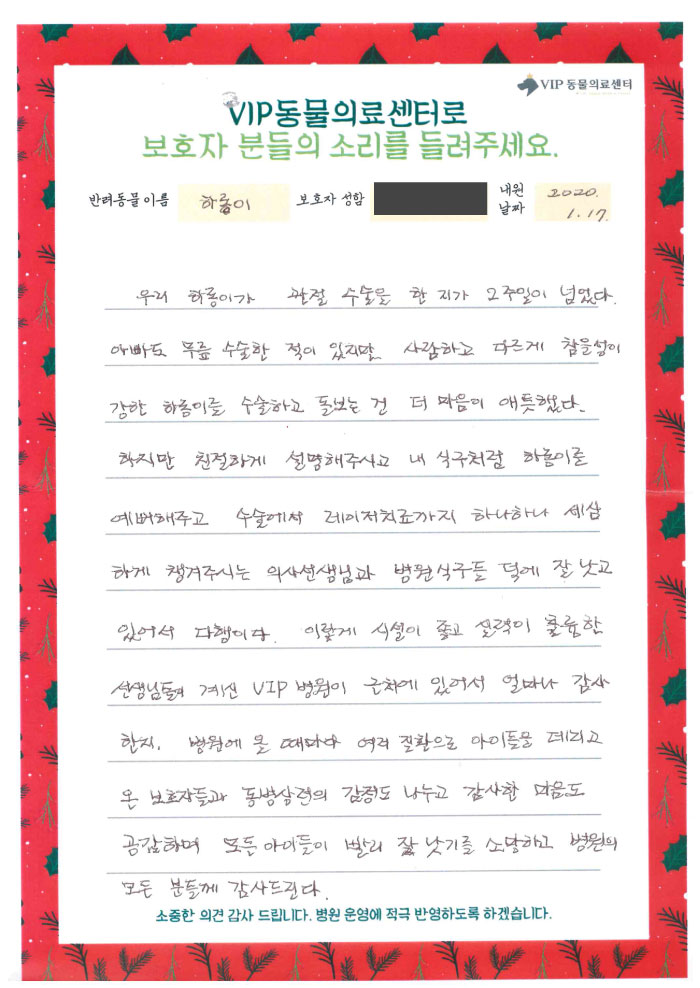 VIP 동물의료센터
VIP동물의료센터로
보호자 분들의 소리를 들려주세요.
반려동물 이름 하롱이 보호자 성함 내원 날짜 2020. 1. 17.
우리 하롱이가 관절 수술을 한 지가 2주일이 넘었다.
아빠도 무릎 수술한 적이 있지만 사람하고 다르게 참을성이
강한 하롱이를 수술하고 돌보는 건 더 마음이 애틋했다.
하지만 친절하게 설명해주시고 내 식구처럼 하롱이를
예뻐해주고 수술에서 레이저치료까지 하나하나 세심
하게 챙겨주시는 의사선생님과 병원식구들 덕에 잘 낫고
있어서 다행이다. 이렇게 시설이 좋고 실력이 훌륭한
선생님들이 계신 VIP 병원이 근처에 있어서 얼마나 감사
한지. 병원에 올 때마다 여러 질환으로 아이들을 데리고
온 보호자들과 동병상련의 감정도 나누고 감사한 마음도
공감하며 모든 아이들이 빨리 잘 낫기를 소망하고 병원의
모든 분들께 감사드린다.
소중한 의견 감사 드립니다. 병원 운영에 적극 반영하도록 하겠습니다.